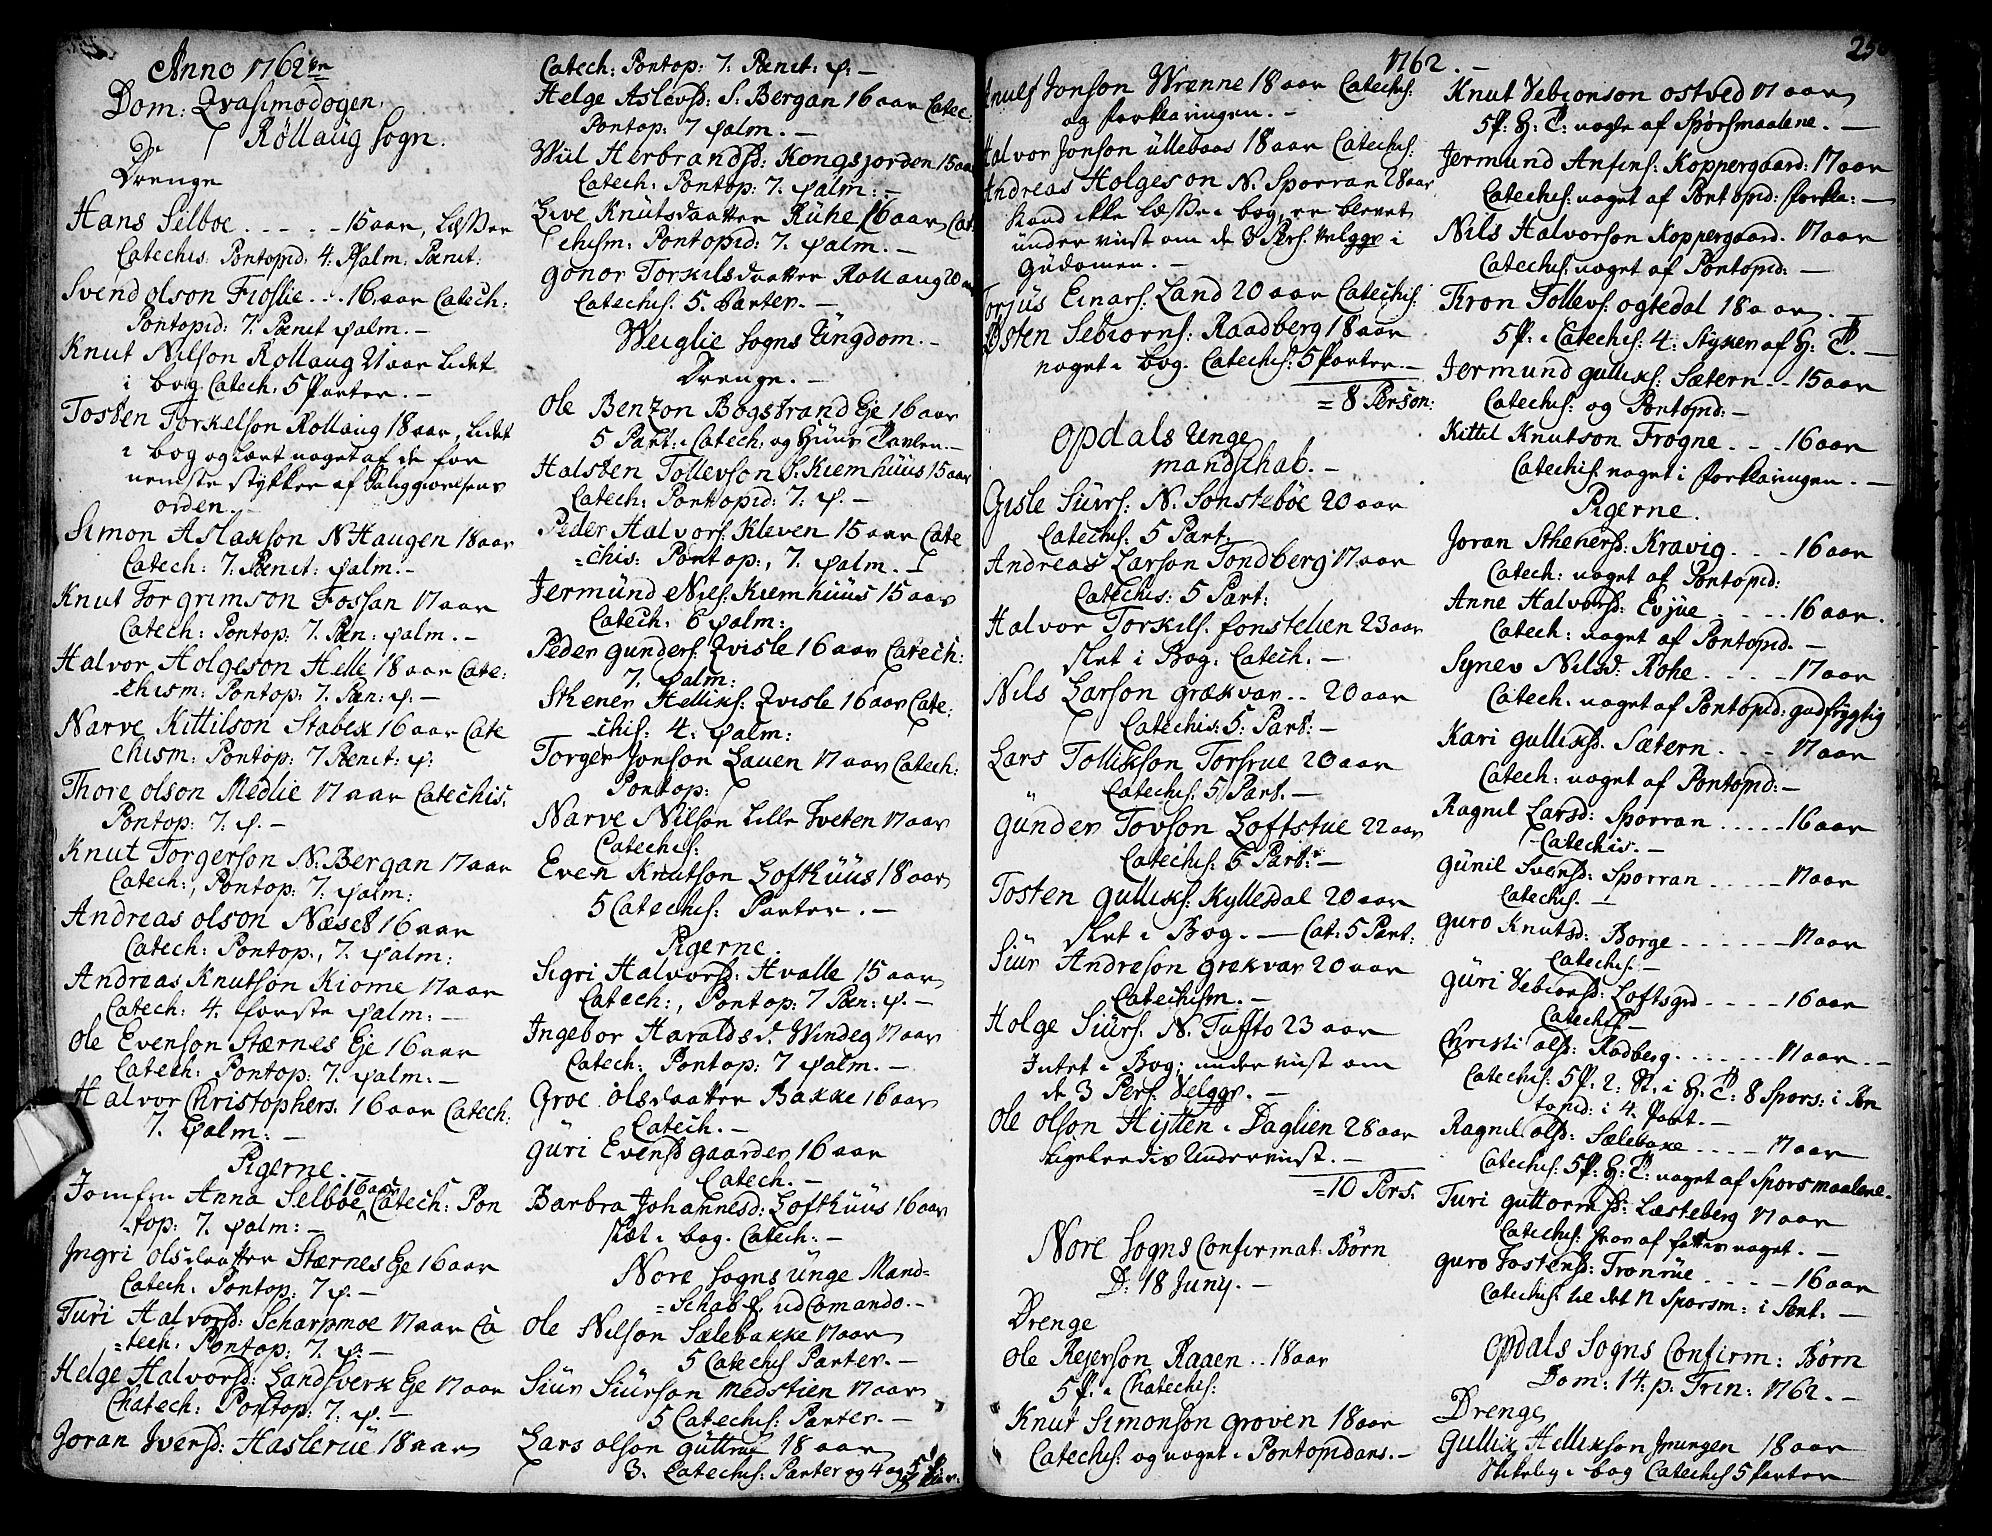 Anno 1762
Dom: Qvasimodogen.
Rollaug Sogn.
Drenge
Hans Selboe . . . . 15 aar, Læsser
Catechis: Pontopid: 4. Psalm: Pænit:
Svend Olson Froslie . . 16 aar Catech:
Pontopid: 7. Pænit psalm. –
Knut Nilson Rollaug 21 aar Lidet
i bog Catech. 5 Parter. –
Tosten Torkelson Rollaug 18 aar, Lidet
i bog og lært noget af de for
nemste stykker af Saliggiørelsens
orden. –
Simon Aslakson N Haugen 18 aar
Catech: 7. Pænit: psalm. –
Knut Torgrimson Fossan 17 aar
Catech: Pontop: 7. Pæn: psalm. –
Halvor Holgeson Helle 18 aar Cate:
chism: Pontop: 7. Pæn: p. –
Narve Kittilson Stabek 16 aar Cate
chism: Pontop: 7 Pænit: p:
Thore Olson Medlie 17 aar Catechis.
Pontop: 7. p. –
Knut Torgerson N: Bergan 17 aar
Catech:, Pontop: 7. psalm:
Andreas Olson Næset 16 aar
Catech: Pontop:, 7. psalm:
Andreas Knutson Kiome 17 aar
Catech: 4. første psalm: –
Ole Evenson Stærnes Eje 16 aar
Catech: Pontop: 7. psalm: –
Halvor Christophers. 16 aar Catech:
7. psalm: –
Pigerne. –
Jomfru Anna Selboe 16 aar Catech: Pon
top: 7. psalm: –
Ingri Olsdaatter Stærnes Eje 16 aar
Catech: Pontop: 7 p. –
Turi Halvorsd: Scharpmoe 17 aar Ca
=tech: Pontop: 7. p. –
Helge Halvorsd: Landsverk Eje 17 aar
Chatech: Pontop: 7: p. –
Joran Iversd: Haslerue 18 aar
Catech: Pontop: 7: Pænit: p. –
Helge Aslevsd: S. Bergan 16 aar Catec:
Pontop: 7 psalm. –
Wiil Herbrandsd: Kongsjorden 15 aar
Catech: Pontop: 7. psalm: –
Live Knutsdaatter Ruhe 16 aar Cat
echism: Pontopid: 7. psalm. –
Gonor Torkilsdaatter Rollaug 20 aar
Catechis: 5. Parter. –
Weiglie Sogns Ungdom. –
Drenge. –
Ole Benzon Bogstrand Eje 16 aar
5 Part: i Catech: og Huus Tavlen –
Halsten Tollevson S. Kiemhuus 15 aar
Catech: Pontopid: 7. p. –
Peder Halvors: Kleven 15 aar Cate
=chis: Pontop:, 7. psalm. –
Jermund Niels: Kiemhuus 15 aar
Catech: 6 psalm:
Peder Gunders: Qvisle 16 aar Catech:
7. psalm:
Sthener Helliks: Qvisle 16 aar Cate:
chis: 4. psalm:
Torger Jonson Lauen 17 aar Catech:
Pontop:
Narve Nilson Lille Tveten 17 aar
Catechis:
Even Knutson Lofthuus 18 aar
5 Catechis: Parter. –
Pigerne.
Sigri Halvorsd: Hvalle 15 aar
Catech:, Pontop: 7 Pæn: p. –
Ingebor Haraldsd. Windeg 17 aar
Catech: Pontop: 7 psalm. –
Groe Olsdaatter Bakke 16 aar
Catech. –
Guri Evensd Gaarder 16 aar
Catech. –
Barbra Johannesd: Lofthuus 16 aar
slet i bog. Catech: –
Nore Sogns Unge Mand-
=Schab f. ud Comando. –
Ole Nilson Sælebakke 17 aar
5 Catechis Parter. –
Siur Siurson Medstien 17 aar
5 Catechis: Parter. –
Lars Olson Guttrue 18 aar
3. Catechis: Parter og 4 og 5
1762. –
Jonson Wrenne 18 aar Catechis:
og Forklaringen. –
Halvor Jonson Ullebaas 18 aar Catechis:
Andreas Holgeson N. Sporran 28 aar
kand ikke læsse i bog, er blevet
under viist om de 3 Pers. Velggr i
Gudomen. –
Torjus Einars. Land 20 aar Catechis:
Østen Sebiorns: Raadberg 18 aar
noget i bog. Catechis: 5 Parter. –
= 8 Person:
Opdals Unge
mandschab. –
Gisle Siurs: N. Sonstebøe 20 aar
Catechis: 5 Part.
Andreas Larson Tondberg 17 aar
Catechis: 5 Part:
Halvor Torkils. Fonstelien 23 aar
slet i Bog. Catech. –
Nils Larson Grækvar . . 20 aar
Catechis: 5: Part: –
Lars Tollikson Torsrue 20 aar
Catechis: 5 Part. –
Gunder Tovson Loftstue 22 aar
Catechis: 5 Part: –
Tosten Gulliks: Kyllesdal 20 aar
slet i Bog. – Cat: 5 Part:
Siur Andreson Grekvar 20 aar
Catechism. –
Holge Siurs. N. Tuffto 23 aar
Intet i Bog; under viist om
de 3 Pers. Velggr. –
Ole Olson Hijtten i Daglien 28 aar
ligeledis Underviist. –
=10 Pers.
Nore Sogns Confirmat: Børn
D: 18 Juny. –
Drenge
Ole Rejerson Raaen . . 18 aar
5 P. i Chatechis:
Knut Simonson Groven 18 aar
Catechis: og noget i Pontopidans. –
Knut Vebionson Ostved 17 aar
5 P: H: T: nogle af Spørsmaalene. –
Jermund Anfins: Koppergaard: 17 aar
Catechis: noget af Pontopid: forkla: –
Nils Halvorson Koppergaard. 17 aar
Catechis: noget af Pontopid: –
Tron Tollevs: Ogtedal 18 aar. –
5 P. i Catechis: 4: Styker af H: T. –
Jermund Gulliks: Sætern – – 15 aar
Catechis: og Pontopid: –
Kittil Knutson Frogne . . . 16 aar
Catechis. noget i Forklaringen. –
Pigerne.
Joran Sthenersd: Kravig . . . . 16 aar
Catech: noget af Pontopid:
Anne Halvorsd: Evjue . . . . . 16 aar.
Catech: noget af Pontopid. –
Synev Nilsd: Rohe . . . . . 17 aar
Catech: noget af Pontopid: gudfrygtig
Kari Gulliksd. Sætern . . . . 17 aar
Catech: noget af Pontopid: –
Ragnil Larsd: Sporran . . . . . 16 aar
Catechis. –
Gunil Svensd: Sporran . . . . . . 17 aar
Catechis. –
Guro Knutsd: Borge . . . . . . . 17 aar
Catechis: –
Guri Vebiorsd: Loftsgrd . . . . . 16 aar
Catechis. –
Christi Olsd: Radberg . . . . . . . 17 aar. –
Catechis: 5 P. 2: St. i H: T: 8 Spors: i Pon
topid: i 4. Part. –
Ragnil Olsd: Sælebake . . . . . 17 aar
Catechis: 5 P: H: T: noget af Sporsmaalene. –
Turi Guttormsd: Læsteberg 17 aar
Catechis: svar af fatter noget. –
Guro Tostensd: Tronrue . . . . . 16 aar
Catechis: til det 11 Sporsm: i Pont. –
Opdals Sogns Confirm: Børn
Dom: 14: p: Trin: 1762. –
Drenge
Gullik Hellikson Jmingen 18 aar
Skikelig i bog Catechis 5 Parter